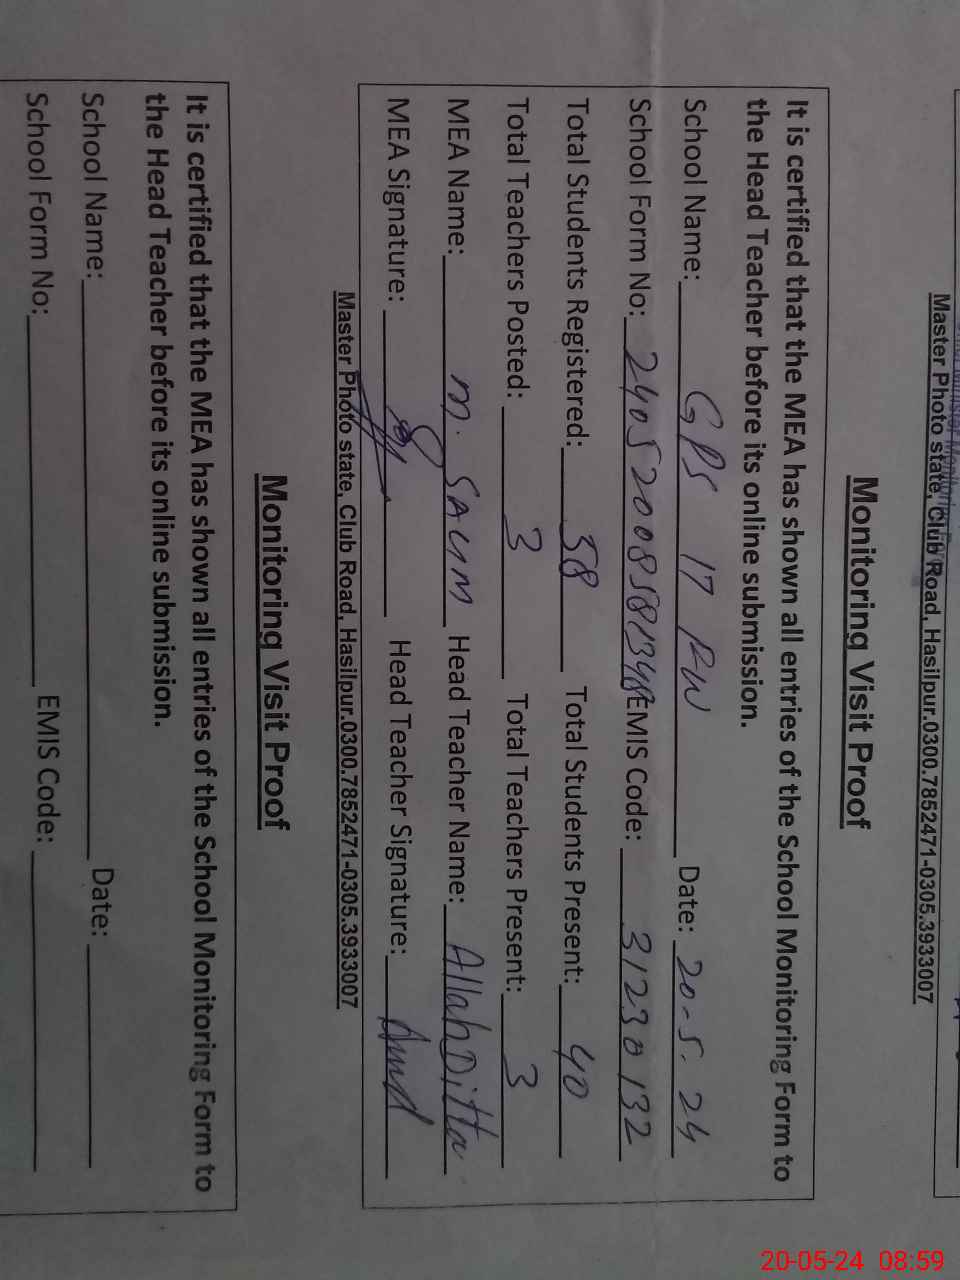 Master Photo state, Club Road, Hasilpur.0300.7852471-0305.3933007
Monitoring Visit Proof
It is certified that the MEA has shown all entries of the School Monitoring Form to
the Head Teacher before its online submission.
School Name: GPS 17 RW Date: 20-5.24
School Form No: EMIS Code: 31230132
Total Students Registered: 58 Total Students Present: 40
Total Teachers Posted: 3 Total Teachers Present: 3
MEA Name: M. SALIM Head Teacher Name: Allah Ditta
MEA Signature: Head Teacher Signature:
Master Photo state, Club Road, Hasilpur.0300.7852471-0305.3933007
Monitoring Visit Proof
It is certified that the MEA has shown all entries of the School Monitoring Form to
the Head Teacher before its online submission.
School Name: Date:
School Form No: EMIS Code:
20-05-24 08:59